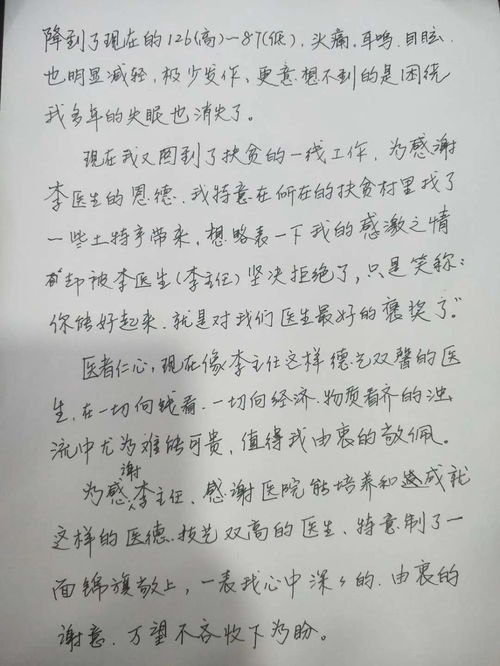 降到了现在的126(高)—87(低)、头痛、耳鸣、目眩
也明显减轻，极少发作，更意想不到的是困绕
我多年的失眠也消失了。
现在我又回到了扶贫的一线工作，为感谢
李医生的恩德，我特意在所在的扶贫村里找了
一些土特产带来，想略表一下我的感激之情
却被李医生(李主任)坚决拒绝了，只是笑称：
你能好起来，就是对我们医生最好的褒奖了"
医者仁心，现在像李主任这样德艺双馨的医
生，在一切向钱看，一切向经济、物质看齐的浊
流中尤为难能可贵，值得我由衷的敬佩。
为感谢李主任、感谢医院能培养和成就
这样的医德、技艺双高的医生、特意制了一
面锦旗敬上，一表我心中深々的、由衷的
谢意，万望不吝收下为盼。